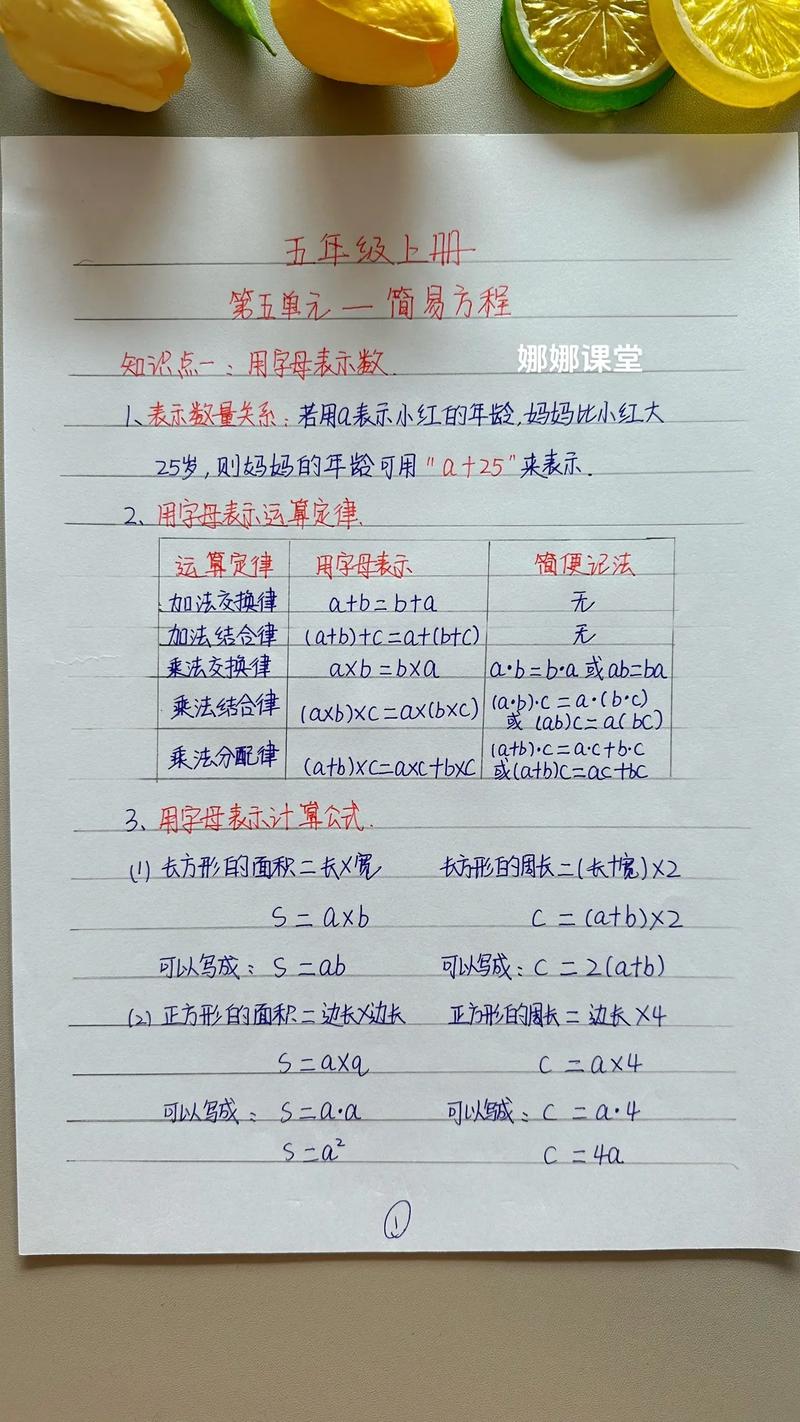 五年级上册
第五单元 — 简易方程
知识点一：用字母表示数.
娜娜课堂
1、表示数量关系：若用a表示小红的年龄,妈妈比小红大
25岁,则妈妈的年龄可用“a+25”来表示.
2、用字母表示运算定律.
运算定律 用字母表示 简便记法
加法交换律 a+b=b+a 无
加法结合律 (a+b)+c=a+(b+c) 无
乘法交换律 a×b=b×a a·b=b·a 或 ab=ba
乘法结合律 (a×b)×c=a×(b×c) (a·b)·c=a·(b·c)
或 (ab)c=a(bc)
乘法分配律 (a+b)×c=a×c+b×c (a+b)·c=a·c+b·c
或(a+b)c=ac+bc
3、用字母表示计算公式.
(1) 长方形的面积=长×宽 长方形的周长=(长+宽)×2
S=a×b C=(a+b)×2
可以写成：S=ab 可以写成：C=2(a+b)
(2) 正方形的面积=边长×边长 正方形的周长=边长×4
S=a×a C=a×4
可以写成：S=a·a 可以写成：C=a·4
S=a² C=4a
1